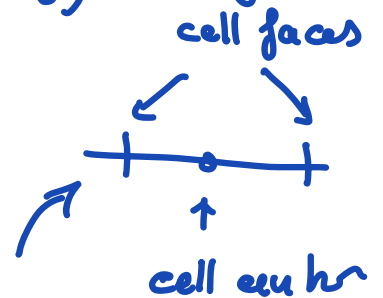 cell faces
cell center